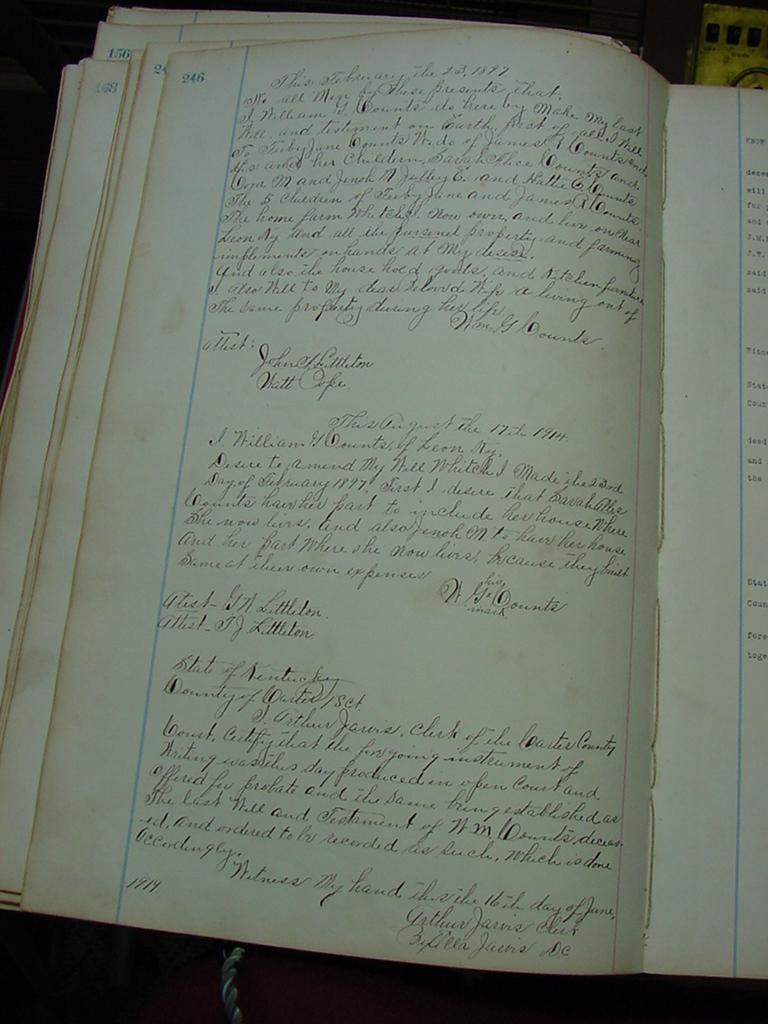 156
168
24
246
This February the 23, 1897
No all Men by these presents that
I William G Counts do here by Make My last
Will and testiment on Earth first of all I Will
To Feeby Jane Counts Wido of James R Counts and
his and her Childern, Sarah Alice Counts and
Cogr M and Jenoh M Julley E. and Hattie E Counts
The 5 Children of Feeby Jane and James R Counts
The home farm Whitch I Now own and live on Near
Leon Ky and all the pursenel property and farming
implements on hands at My desese.
And also the house hold goods, and Kitchen furniture
I also Will to My dear belovd Wife a living out of
The same property during her life
Wm G Counts
Attest:
John F Littleton
Watt Cope
This August the 17th 1914.
I William G Counts, of Leon Ky.
Desire to amend My Will Whitch I Made the 23rd
Day of February 1897. First I desire that Sarah Allis
Counts have her part to include her house Where
She now lives. and also Jenoh M to have her house
And her part Where she now lives, because they built
Same at their own expenses
his
W. G. x Counts
mark
Attest - G W Littleton.
Attest - T J Littleton
State of Kentucky
County of Carter Sct.
I, Arthur Jarvis, Clerk of the Carter County
Court, Certify that the forgoing instrument of
Writing was this day produced in open Court and
Offered for probate and the same being established as
The last Will and Testament of W M Counts, deceas-
ed, and ordered to be recorded as such, Which is done
Accordingly.
Witness My hand this the 16th day of June,
1919
Arthur Jarvis Clerk
By Ella Jarvis DC
KNOW
will
for
and
J.M.
J.W.
said
said
Witne
Stat
Coun
deed
and
the
Stat
Coun
fore
toge